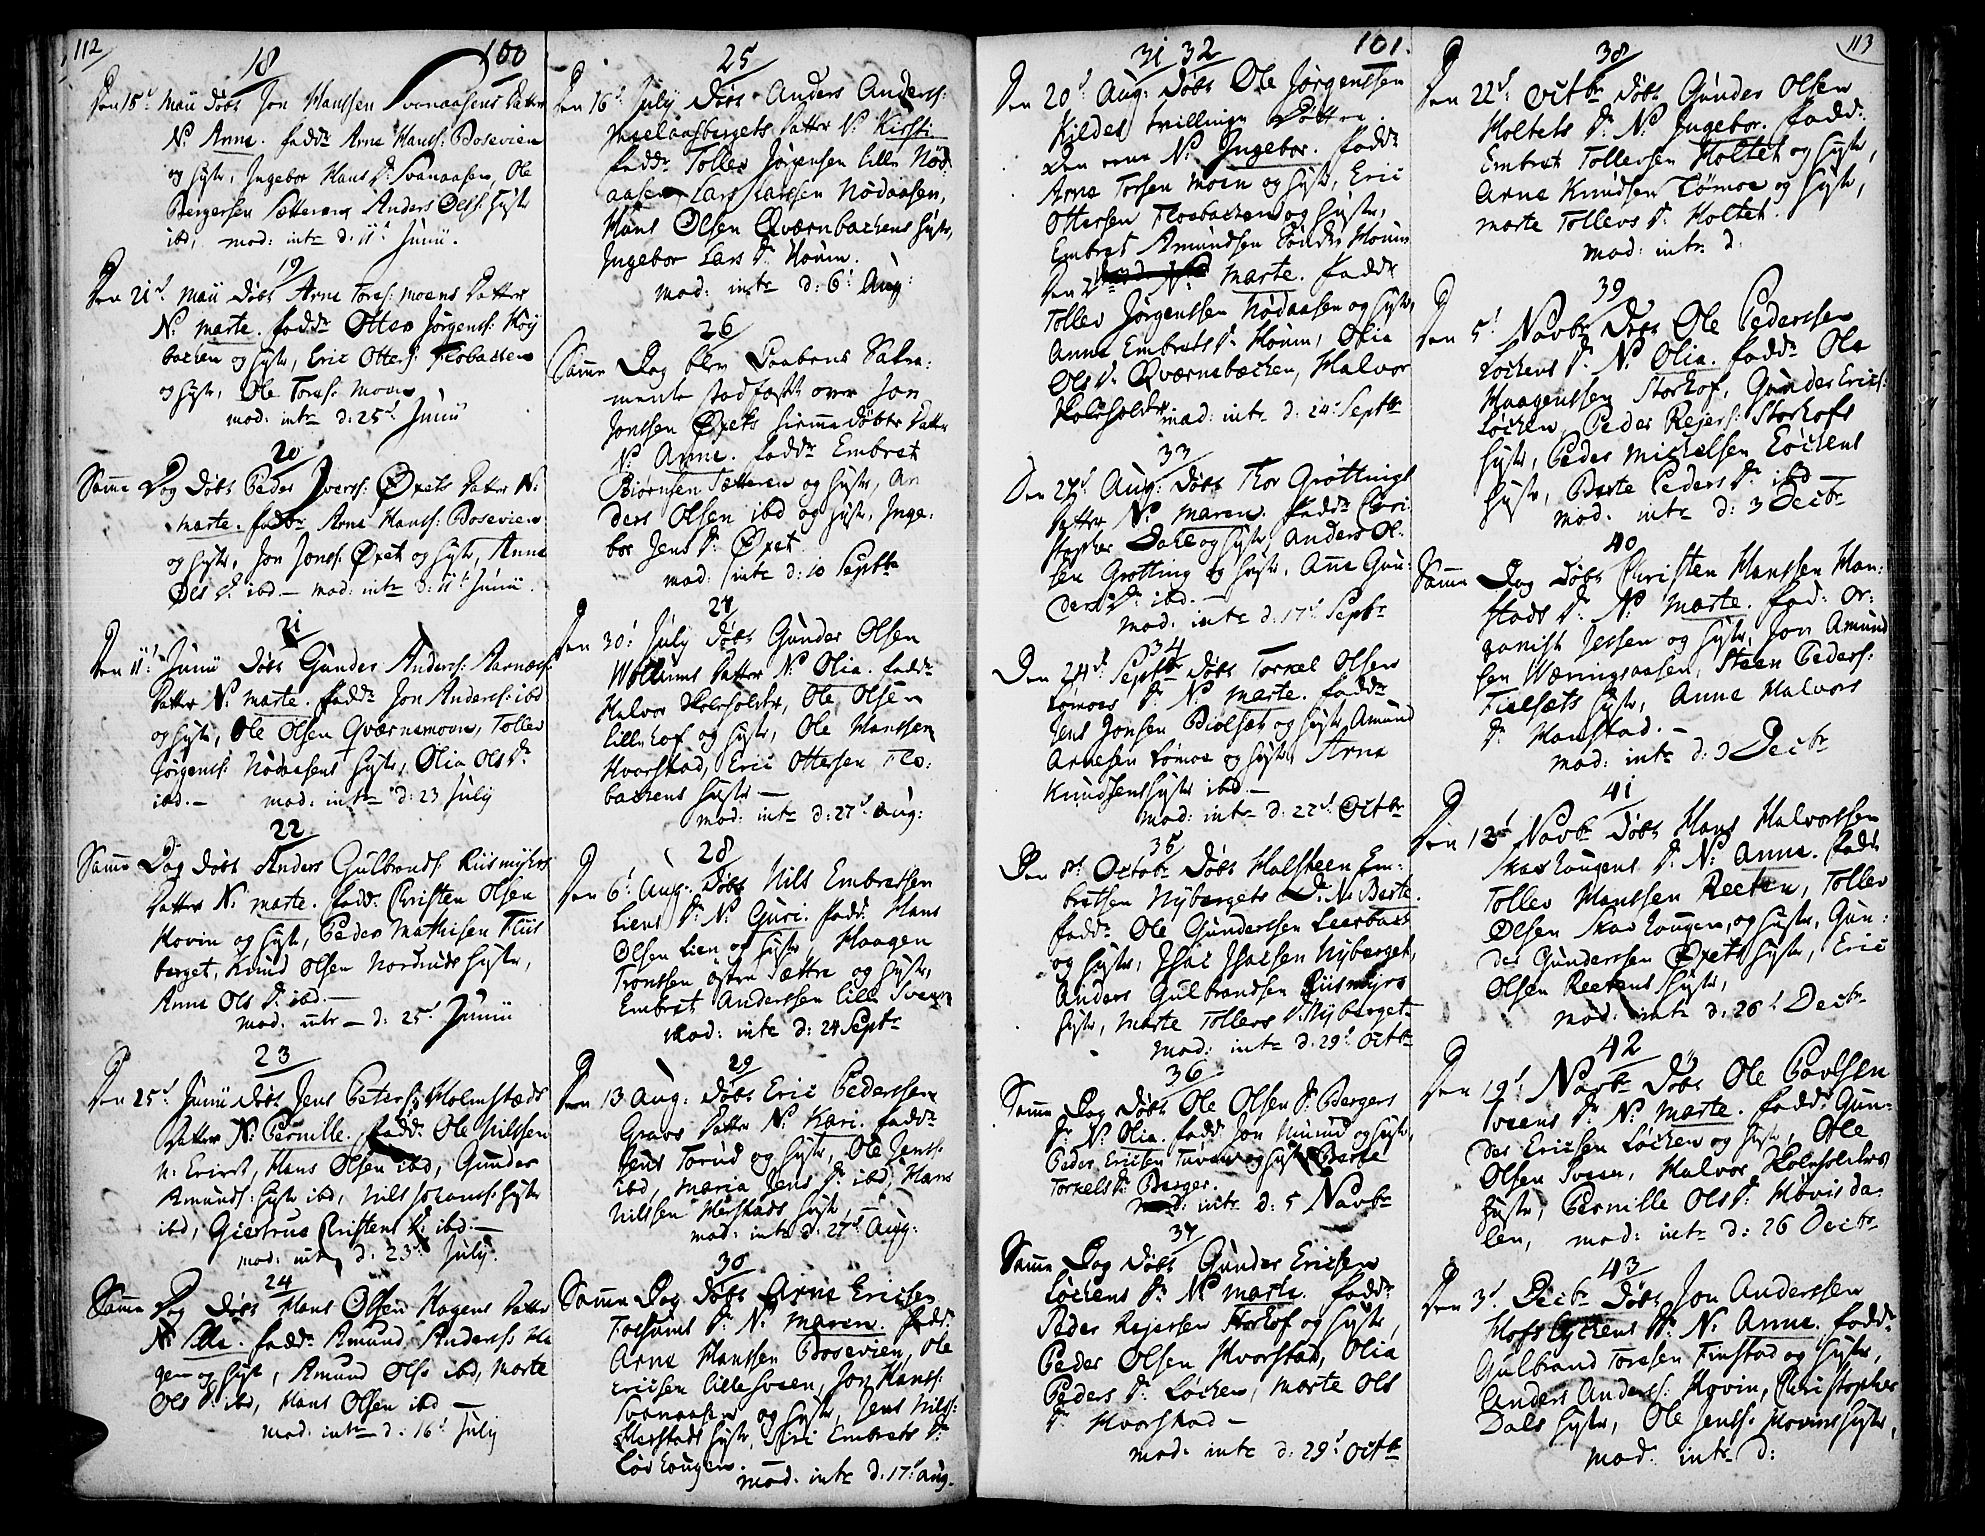 112
100
18
Den 15de Maii Döbt Jon Hanssen Svenaasens Datter
N: Anne. fadd: Arne Hanss: Bosevien
og Hustr, Ingebor Hans D: Svenaasen, Ole
Bergersen Sætteren Anders Oels: Hustr
ibd, mod: intr d: 11te Junii.
19
Den 21de Maii Döbt Arne Tores: Moens Datter
N: Marte. fadd: Otter Jörgenss: Höy
backen og Hustr, Eric Otters: Flobacken
og Hustr, Ole Tores: Moen
mod: intr d: 25de Junii
20
Samme Dag Döbt Peder Iverss: Öxets Datter N:
Marte. fadd: Arne Hanss: Bosevien
og Hustr, Jon Jonss: Öxet og Hustr, Anne
Oels D. ibd — mod: intr d: 11te Junii.
21
Den 11te Junii Döbt Gunder Anderss: Aarnæs
Datter N: Marte. fadd: Jon Anderss: ibd
og Hustr, Ole Olsen Qværnemoen, Tollev
Jörgenss: Nödaasens Hustr, Olia Ols D:
ibd. — mod: intr d: 23 July
22
Samme Dag Döbt Anders Gulbrands: Riismyhrs
Datter N: Marte. fadd: Christen Olsen
Hovin og Hustr, Peder Mathisen Fliis
berget, Knud Olsen Nordruds Hustr,
Anne Ols D: ibd. —
mod: intr — d: 25de Junii
23
Den 25de Junii Döbt Jens Peters: Holmstæds
Datter N: Pernille. fadd: Ole Nilssen
ibd, Hans Olsen ibd, Gunder
Amunds: Hustr ibd, Nils Johanss: Hustr
ibd, Giertrue Christens D: ibd. —
mod: intr d: 23de July.
24
Samme Dag Döbt Hans Olsen Hagens Datter
N: Sille. fadd: Amund Anders: Ha
gen og Hustr, Amund Ols: ibd, Marte
Ols D: ibd, Hans Olsen ibd —
mod: intr d: 16de July
25
Den 16de July Döbt Anders Anders:
Datter N: Kirsti
fadd: Tollev Jörgensen lille Nöd
aasen Lars Larssen Nödaasen,
Hans Olsen Qværnbackens Hustr,
Ingebor Lars D: Houm.
mod: intr d: 6te Aug:
26
Samme Dag blev Daabens Sakra:
mente stadfæst over Jon
Jonssen Öxets hiemmedöbte Datter
N: Anne. fadd: Embret
Biörnsen Sætteren og Hustr, An
ders Olsen ibd og Hustr, Inge:
bor Jens D: Öxet
mod: intr d: 10 Septbr
27
Den 30te July Döbt Gunder Olsen
Wollums Datter N: Olia. fadd:
Halvor Skoeholder, Ole Olsen
Lille Hof og Hustr, Ole Hanssen
Hvorstad, Eric Ottersen Flo:
backens Hustr —
mod: intr d: 27de Aug:
28
Den 6te Aug: Döbt Nils Embretsen
Liens D: N: Guri. fadd: Hans
Olsen Lien og Hustr, Haagen
Trontsen östre Sættre og Hustr,
Embret Anderssen lille Sveen
mod: intr d: 24 Septr
29
Den 13 Aug: Döbt Eric Pederssen
Graos Datter N: Kari. fadd:
Jens Torud og Hustr, Ole Jenss:
ibd, Maria Jens D: ibd, Hans
Nilssen Herstads Hustr
mod: intr d: 27de Aug:
30
Samme Dag Döbt Arne Ericsen
D: N: Maren. fadd:
Arne Hanssen Bosevien, Ole
Ericsen Lillesveen, Jon Hanss:
Svenaasen og Hustr, Jens Nilss:
Herstads Hustr, Siri Embrets D:
Löchougen.
mod: intr d: 17de Aug.
101.
113
31 32
Den 20de Aug: Döbt Ole Jörgenssen
Kildes tvillinge Döttre.
Den eene N: Ingebor. fadd:
Arne Torsen Moen og Hustr, Eric
Ottersen Flobacken og Hustr,
Embret Amundsen Sönder Houm
Den N: Marte. fadd:
Tollev Jörgenssen Nödaasen og Hustr,
Anne Embrets D: Houm, Olia
Ols D: Qværnebæcken, Halvor
Skoeholder mod: intr d: 24 Septbr
33
Den 27de Aug: Döbt Thor Gröttings
Datter N: Maren. fadd: Chri
stopher Dahl og Hustr, Anders Ol:
sen Grötting og Hustr, Anne Gun:
ders D: ibd. —
mod: intr d: 17de Septbr
34
Den 24de Septbr Döbt Torkel Olsen
Lömoes D: N: Marte. fadd:
Jens Jonsen Biölset og Hustr, Amund
Arnesen Lömoe og Hustr, Arne
Knudsens Hustr ibd. —
mod: intr d: 22de Octbr
35
Den 8de Octobr Döbt Halsteen Em:
bretsen Nybergets D: N: Berte.
fadd: Ole Gunderssen Leerback
og Hustr, Isac Isacsen Nyberget,
Anders Gulbrandsen Riismyrs
Hustr, Marte Tollevs D: Nyberget
mod: intr d: 29de Octbr
36
Samme Dag Döbt Ole Olsen D: Bergers
D: N: Olia. fadd: Jon og Hustr,
Peder Ericsen og Hustr Berte
Torkels D: Berger.
mod: intr d: 5 Novbr
37
Samme Dag Döbt Gunder Ericsen
Löckens D: N: Marte. fadd:
Peder Rejersen Storhof og Hustr,
Peder Olsen Hvorstad, Olia
Peders D: Löcken, Marte Ols
D: Hvorstad —
mod: intr d: 29de Octbr
38
Den 22de Octbr Döbt Gunder Olsen
Holtets D: N: Ingebor. fadd:
Embret Tollevsen Holtet og Hustr,
Arne Knudsen Lömoe og Hustr,
Marte Tollevs D: Holtet.
mod: intr d:
39
Den 5te Novbr Döbt Ole Pederssen
Lockens D: N: Olia. fadd: Ole
Haagenssen Storhof, Gunder Erics:
Löcken, Peder Rejers: Storhofs
Hustr, Peder Michelsen Löckens
Hustr, Berte Peders D: ibd —
mod: intr d: 3 Decbr
40
Samme Dag Döbt Christen Hanssen Han:
stads D: N: Marte. fad: Or:
ganist Jessen og Hustr, Jon Amund
sen Wæringsaasen, Steen Peders:
Fielsæts Hustr, Anne Halvors
D: Hanstad. —
mod: intr d: 3 Decbr
41
Den 12te Novbr Döbt Hans Halvorssen
Skavhaugens D: N: Anne. fadd:
Tollev Hanssen Reeten, Tollev
Olsen Skavhaugen, og Hustr, Gun:
der Gunderssen Öxets Hustr, Eric
Olsen Reetens Hustr,
mod: intr d: 26de Decbr
42
Den 19de Novbr Döbt Ole Povlsen
Sveens D: N: Marte. fadd: Gun:
der Ericsen Löcken og Hustr, Ole
Olsen Sveen, Halvor Skoeholders
Hustr, Pernille Ols D: Hovisda:
len, mod: intr d: 26 Decbr
43
Den 3de Decbr Döbt Jon Anderssen
Hofslöckens D: N: Anne. fadd:
Gulbrand Toresen Finstad og Hustr,
Anders Anderss: Hovin, Christopher
Dals Hustr, Ole Jenss: Hovins Hustr,
mod: intr d: